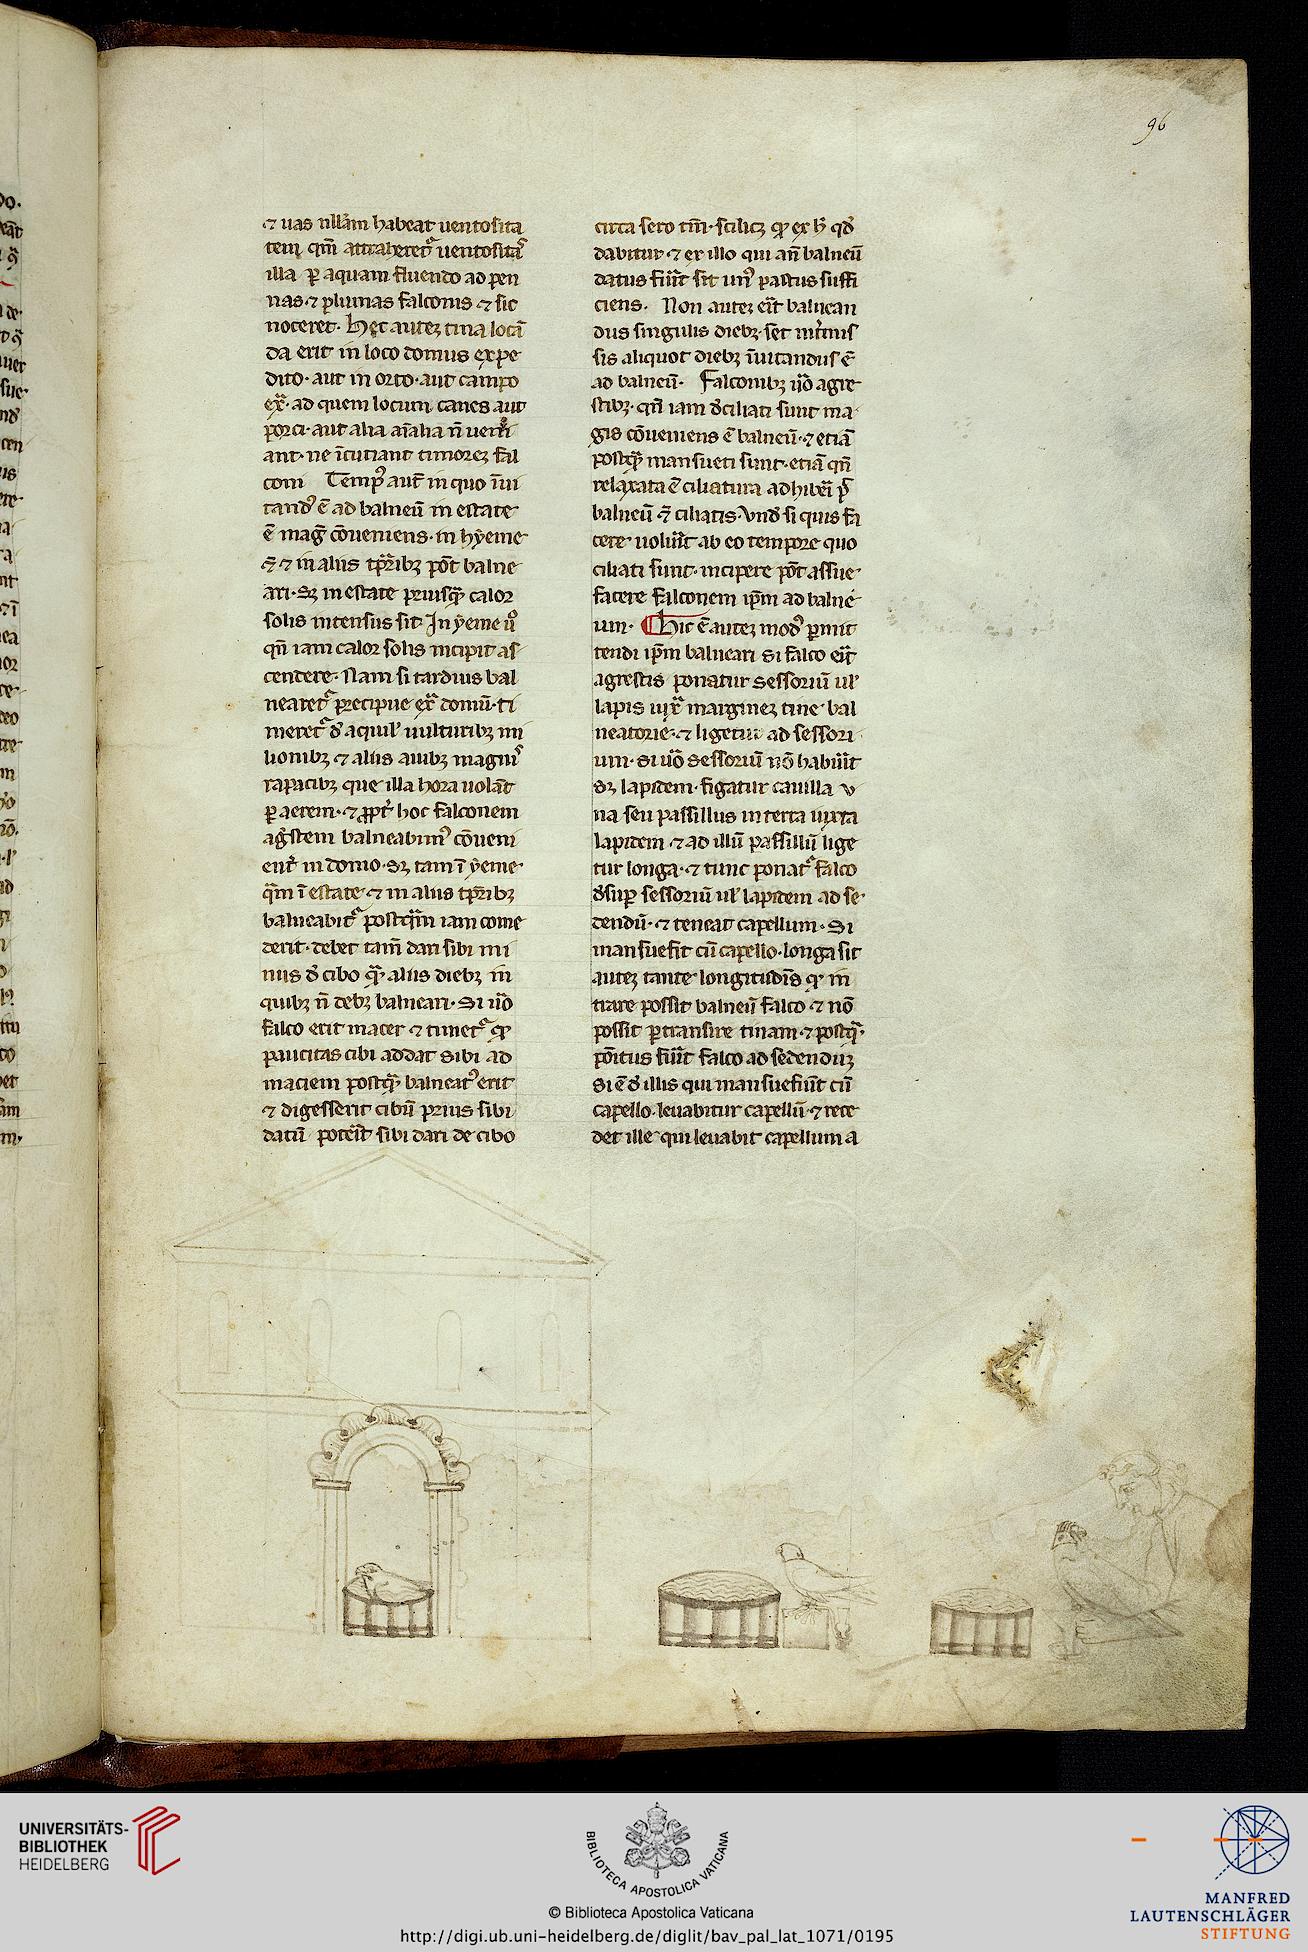 96
⁊ uas nllãm habeat uentosita
tem qm̃ attraheret᷑ uentosita᷑
illa ꝑ aquam fluendo ad pen
nas ⁊ plumas falconis ⁊ sic
noceret. Hec autez tina locã
da erit in loco domus expe
dito. aut in orto. aut campo
ex̃. ad quem locum canes aut
porci. aut alia aĩalia ñ ueni
ant. ne ĩcutiant timorez fal
coni Temp᷒ aut̃ in quo ĩui
tand᷒ ẽ ad balneũ in estate
ẽ mag̃ cõueniens. in hyeme
⁊ in aliis tp̃ribꝫ põt balne
ari. sꝫ in estate priusꝙ̃ calor
solis intensus sit In yeme ũo
qñ iam calor solis incipit as
cendere. Nam si tardius bal
nearet᷑ precipue ex̃ domũ. ti
meret᷑ d̓ aquil̓ uulturibꝫ mi
lionibꝫ ⁊ aliis auibꝫ magnis
rapacibꝫ que illa hora uolãt
ꝑ aerem. ⁊ ꝓpt̃ hoc falconem
ag̃stem balneabim᷒ cõueni
ent̃ in domo. sꝫ tam ĩ yeme
q̃m ĩ estate ⁊ in aliis tp̃ribꝫ
balneabit᷑ postq̃m iam come
derit. debet tam̃ dari sibi mi
nus d̓ cibo q̃ aliis diebꝫ in
quibꝫ ñ debꝫ balneari. Si ũo
falco erit macer ⁊ timet᷑ ꝙ
paucitas cibi addat sibi ad
maciem postꝙ̃ balneat᷒ erit
⁊ digesserit cibũ prius sibi
datũ poterit sibi dari de cibo
circa sero tm̃. scilicꝫ ꝙ ex h̓ qd̓
dabitur ⁊ ex illo qui añ balneũ
datus fũit sit un᷒ pastus suffi
ciens. Non autez erit balnean
dus singulis diebꝫ. set int̃mis
sis aliquot diebꝫ ĩuitandus ẽ
ad balneũ. Falconibꝫ ũo agre
stibꝫ. qñ iam d̓ciliati sunt ma
gis cõueniens ẽ balneũ. ⁊ etiã
postꝙ̃ mansueti sunt. etiã qñ
relaxata ẽ ciliatura adhiberi
balneũ ciliatis. Vnd̓ si quis fa
cere uolũit ab eo tempore quo
ciliati sunt. incipere põt assue
facere falconem ip̃m ad balne
um. Hic ẽ autez mod᷒ ꝑmit
tendi ip̃m balneari si falco erit
agrestis ponatur sessoriũ ul̓
lapis iux̃ marginez tine bal
neatorie. ⁊ ligetur ad sessori
um. si ũo sessoriũ nõ habũit
sꝫ lapidem. figatur cauilla u
na seu passillus in terra iuxta
lapidem ⁊ ad illũ passillũ lige
tur longa. ⁊ tunc ponat᷑ falco
d̓suꝑ sessoriũ ul̓ lapidem ad se
dendũ. ⁊ teneat capellum. Si
mansuefit cũ capello. longa sit
autez tante longitudĩs ꝙ in
trare possit balneũ falco ⁊ nõ
possit ꝑtransire tinam. ⁊ postꝙ̃
põitus fũit falco ad sedenduꝫ
si ẽ d̓ illis qui mansuefiũt cũ
capello. leuabitur capellũ. ⁊ rece
det ille qui leuabit capellum a
UNIVERSITÄTS-
BIBLIOTHEK
HEIDELBERG
BIBLIOTECA APOSTOLICA VATICANA
© Biblioteca Apostolica Vaticana
http://digi.ub.uni-heidelberg.de/diglit/bav_pal_lat_1071/0195
MANFRED
LAUTENSCHLÄGER
STIFTUNG